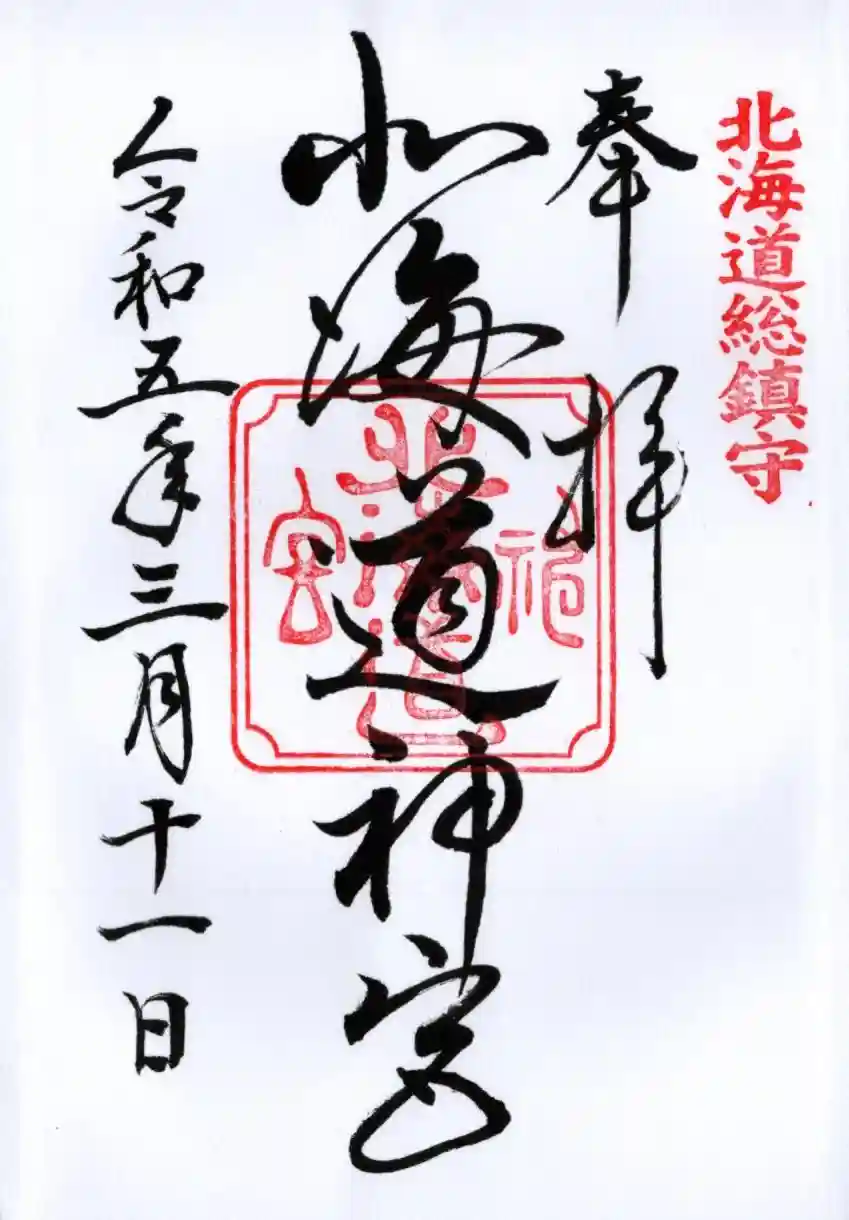 北海道総鎮守
奉拝
北海道神宮
北海道神宮
令和五年三月十一日